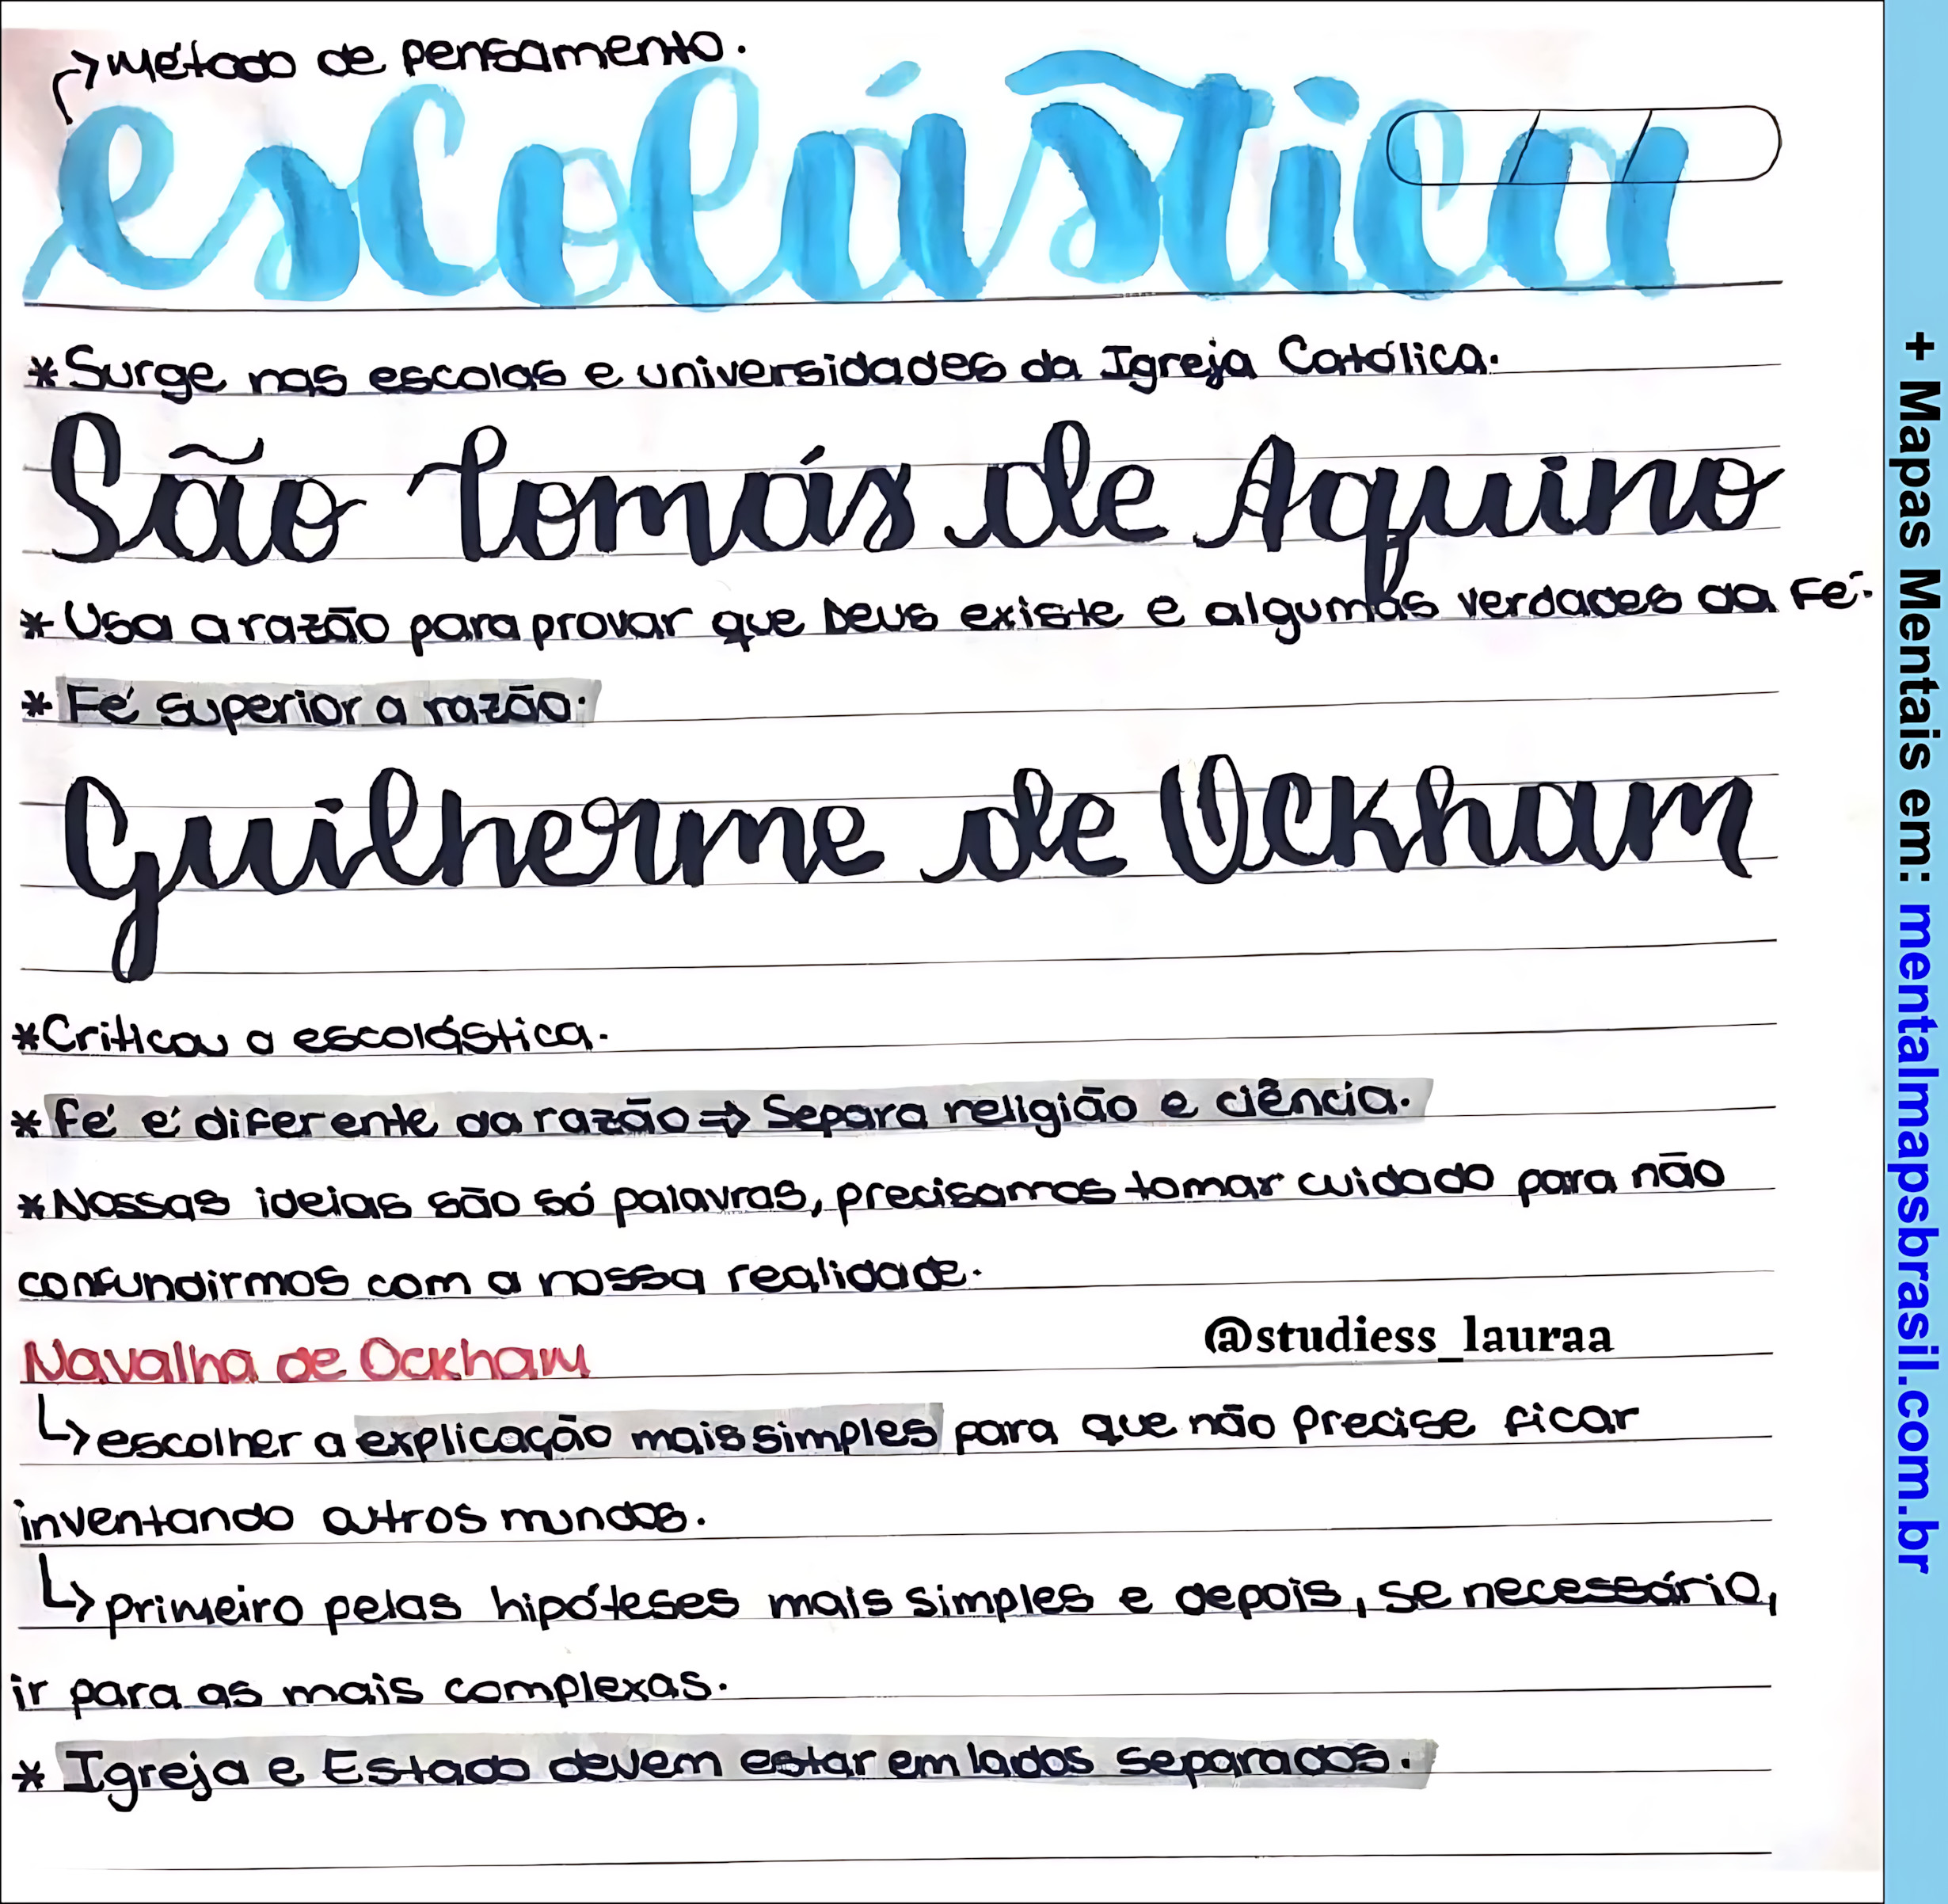 método de pensamento.
escolástica
*Surge nas escolas e universidades da Igreja Católica.
São Tomás de Aquino
* Usa a razão para provar que Deus existe e algumas verdades da Fé.
* Fé superior a razão.
Guilherme de Ockham
*Criticou a escolástica.
* Fé é diferente da razão ⇒ Separa religião e ciência.
*Nossas ideias são só palavras, precisamos tomar cuidado para não
confundirmos com a nossa realidade.
Navalha de Ockham
@studiess_lauraa
↳ escolher a explicação mais simples para que não precise ficar
inventando outros mundos.
↳ primeiro pelas hipóteses mais simples e depois, se necessário,
ir para as mais complexas.
* Igreja e Estado devem estar em lados separados.
+ Mapas Mentais em: mentalmapsbrasil.com.br